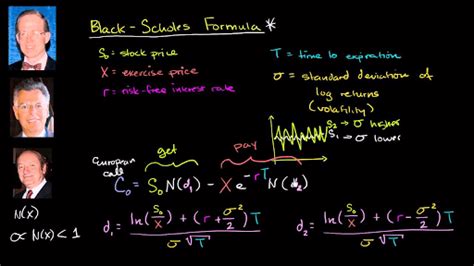 Black-Scholes Formula *
S₀ = stock price
X = exercise price
r = risk-free interest rate
T = time to expiration
σ = standard deviation of
log returns
(volatility)
S₂ → σ higher
S₁ → σ lower
European
call
get
pay
C₀ = S₀ N(d₁) - X e^-rT N(d₂)
N(x)
∝ N(x) < 1
d₁ = (ln(S₀/X) + (r + σ²/2) T) / (σ √T)
d₂ = (ln(S₀/X) + (r - σ²/2) T) / (σ √T)